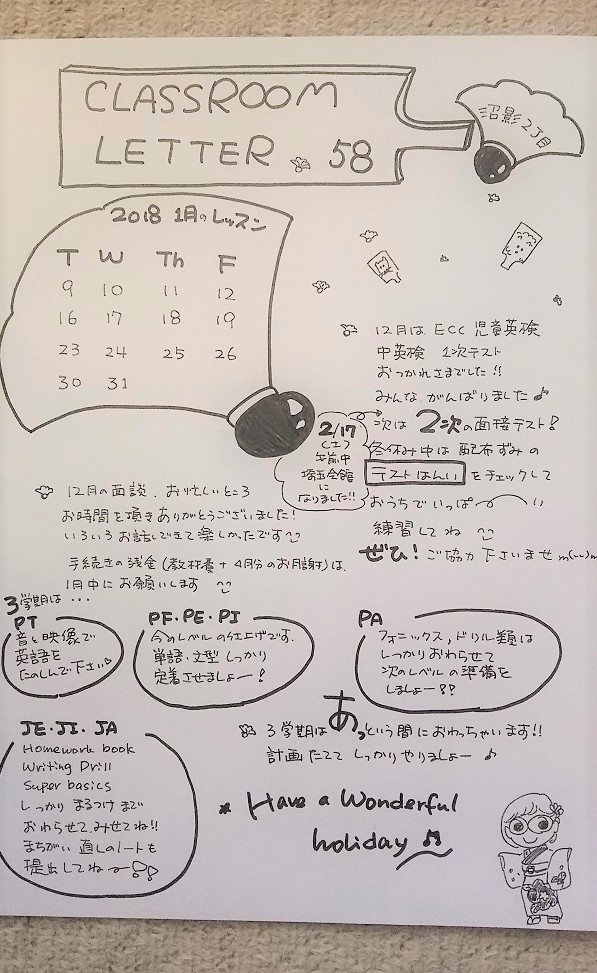 CLASSROOM
LETTER 58
沼影2丁目
2018 1月のレッスン
T W Th F
9 10 11 12
16 17 18 19
23 24 25 26
30 31
12月は ECC 児童英検
中英検 1次テスト
おつかれさまでした!!
みんな がんばりました♪
次は 2次の面接テスト!
冬休み中は 配布ずみの
テストはんい をチェックして
おうちで いっぱい
練習してね
ぜひ! ご協力 下さいませ m(_ _)m
2/17
(土)
午前中
埼玉会館
に
なりました!!
12月の面談、お忙しいところ
お時間を頂きありがとうございました!
いろいろお話しできて楽しかったです
手続きの残金(教材費+4月分のお月謝)は、
1月中にお願いします
3学期は・・・
PT
音と映像で
英語を
たのしんで下さい♡
PF・PE・PI
今のレベルの仕上げです。
単語・文型 しっかり
定着させましょー!
PA
フォニックス、ドリル類は
しっかりおわらせて
次のレベルの準備を
しましょー!?
JE・JI・JA
Homework book
Writing Drill
Super basics
しっかり まるつけまで
おわらせて、みせてね!!
まちがい 直しのノートも
提出してね〜!!
3学期は あっという間におわっちゃいます!!
計画たてて しっかりやりましょー ♪
* Have a Wonderful
holiday ♫